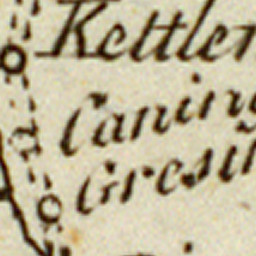 Kettler
Caning
Gresin